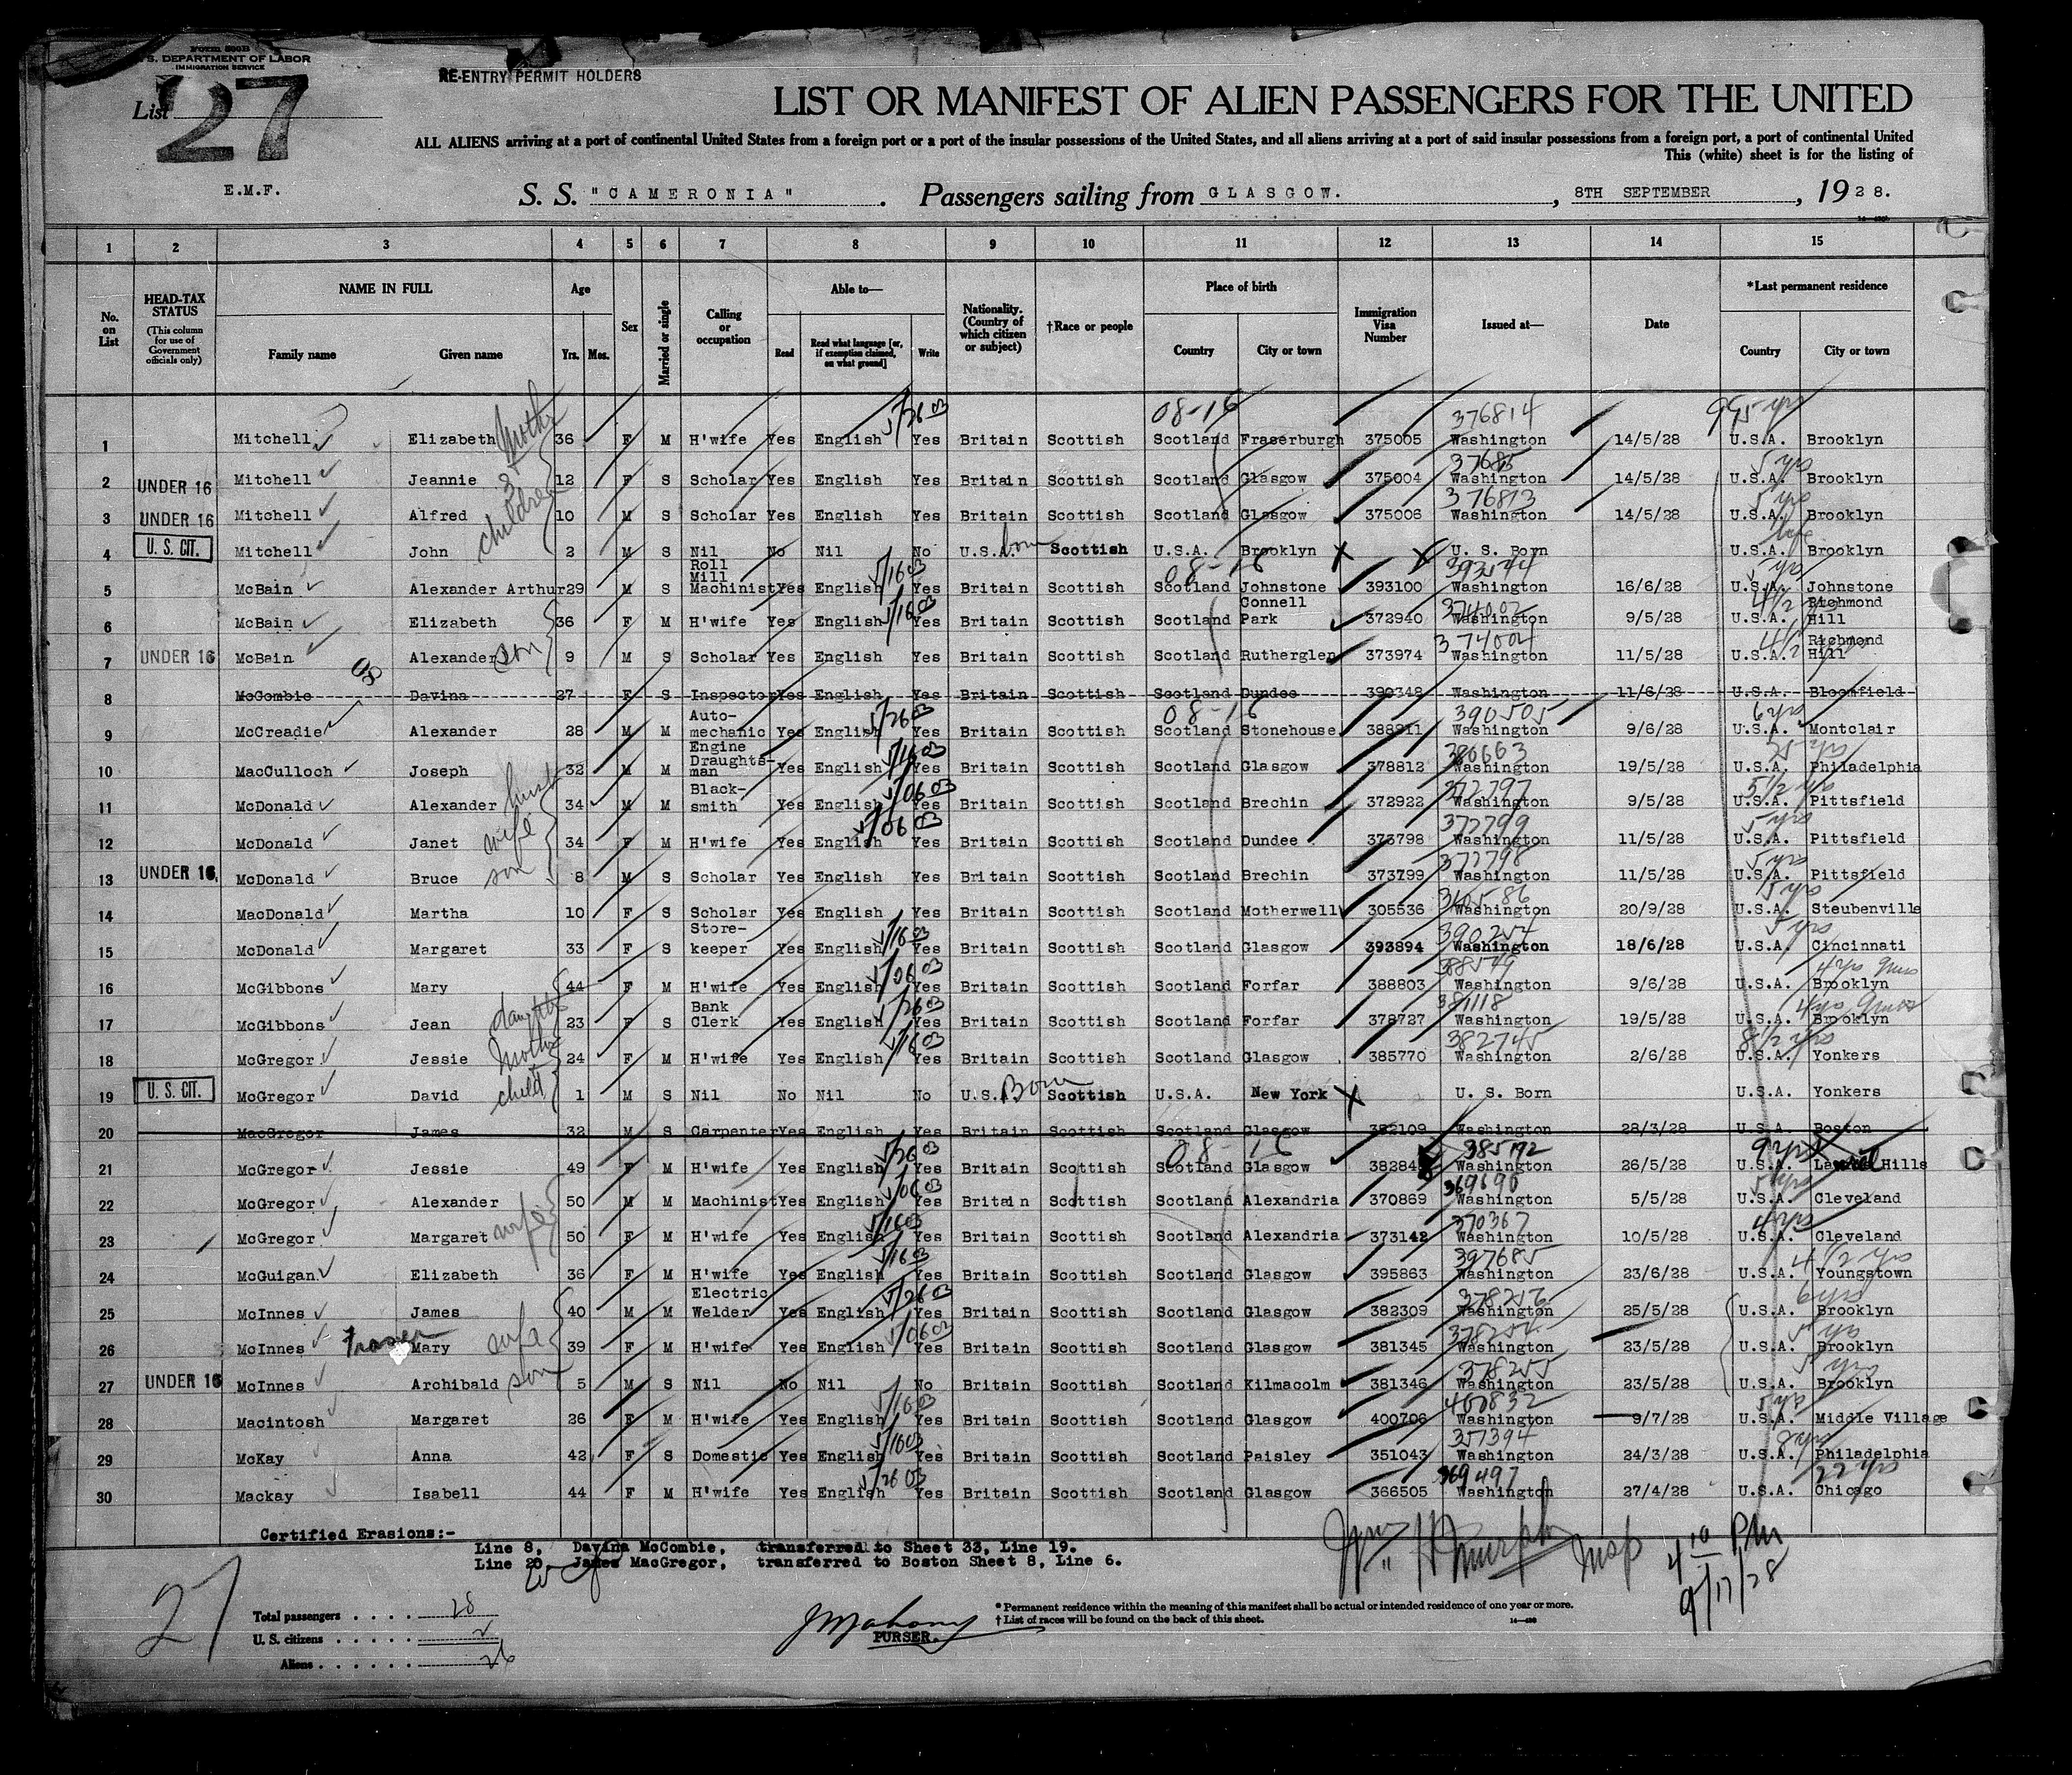 Form 500B
U.S. DEPARTMENT OF LABOR
IMMIGRATION SERVICE
RE-ENTRY PERMIT HOLDERS
List 27
LIST OR MANIFEST OF ALIEN PASSENGERS FOR THE UNITED
ALL ALIENS arriving at a port of continental United States from a foreign port or a port of the insular possessions of the United States, and all aliens arriving at a port of said insular possessions from a foreign port, a port of continental United
This (white) sheet is for the listing of
E.M.F.
S. S. "CAMERONIA" . Passengers sailing from GLASGOW. , 8TH SEPTEMBER , 1928.
1 2 3 4 5 6 7 8 9 10 11 12 13 14 15
No. on List
HEAD-TAX STATUS (This column for use of Government officials only)
NAME IN FULL Family name Given name
Age Yrs. Mos.
Sex
Married or single
Calling or occupation
Able to— Read Read what language [or, if exemption claimed, on what ground] Write
Nationality. (Country of which citizen or subject)
†Race or people
Place of birth Country City or town
Immigration Visa Number
Issued at—
Date
*Last permanent residence Country City or town
08-16 376814
1 Mitchell Elizabeth Mother 36 F M H'wife Yes English Yes Britain Scottish Scotland Fraserburgh 375005 Washington 14/5/28 U.S.A. Brooklyn
5 yrs
2 UNDER 16 Mitchell Jeannie 3 12 F S Scholar Yes English Yes Britain Scottish Scotland Glasgow 375004 Washington 14/5/28 U.S.A. Brooklyn
376813 5 yrs
3 UNDER 16 Mitchell Alfred children 10 M S Scholar Yes English Yes Britain Scottish Scotland Glasgow 375006 Washington 14/5/28 U.S.A. Brooklyn
life
4 U. S. CIT. Mitchell John 2 M S Nil No Nil No U.S.A. born Scottish U.S.A. Brooklyn X X U. S. Born U.S.A. Brooklyn
08-16
5 McBain Alexander Arthur 29 M S Roll Mill Machinist Yes English Yes Britain Scottish Scotland Johnstone 393100 Washington 16/6/28 U.S.A. Johnstone
374002 4 1/2
6 McBain Elizabeth 36 F M H'wife Yes English Yes Britain Scottish Scotland Connell Park 372940 Washington 9/5/28 U.S.A. Richmond Hill
374004 4 1/2
7 UNDER 16 McBain Alexander son 9 M S Scholar Yes English Yes Britain Scottish Scotland Rutherglen 373974 Washington 11/5/28 U.S.A. Richmond Hill
8 McCombie Davina 27 F S Inspector Yes English Yes Britain Scottish Scotland Dundee 390348 Washington 11/6/28 U.S.A. Bloomfield
08-16 390505 6 yrs
9 McCreadie Alexander 28 M M Auto-mechanic Yes English Yes Britain Scottish Scotland Stonehouse 388911 Washington 9/6/28 U.S.A. Montclair
380663
10 MacCulloch Joseph 32 M M Engine Draughts-man Yes English Yes Britain Scottish Scotland Glasgow 378812 Washington 19/5/28 U.S.A. Philadelphia
372797 5 1/2 yrs
11 McDonald Alexander husb 34 M M Black-smith Yes English Yes Britain Scottish Scotland Brechin 372922 Washington 9/5/28 U.S.A. Pittsfield
372799 5 yrs
12 McDonald Janet wife 34 F M H'wife Yes English Yes Britain Scottish Scotland Dundee 373798 Washington 11/5/28 U.S.A. Pittsfield
372798 5 yrs
13 UNDER 16 McDonald Bruce son 8 M S Scholar Yes English Yes Britain Scottish Scotland Brechin 373799 Washington 11/5/28 U.S.A. Pittsfield
5 yrs
14 MacDonald Martha 10 F S Scholar Yes English Yes Britain Scottish Scotland Motherwell 305536 Washington 20/9/28 U.S.A. Steubenville
390254 5 yrs
15 McDonald Margaret 33 F S Store-keeper Yes English Yes Britain Scottish Scotland Glasgow 393894 Washington 18/6/28 U.S.A. Cincinnati
388549 4 yrs 9 mos
16 McGibbons Mary 44 F M H'wife Yes English Yes Britain Scottish Scotland Forfar 388803 Washington 9/6/28 U.S.A. Brooklyn
381118 4 yrs 9 mos
17 McGibbons Jean daughter 23 F S Bank Clerk Yes English Yes Britain Scottish Scotland Forfar 378727 Washington 19/5/28 U.S.A. Brooklyn
382745 8 1/2 yrs
18 McGregor Jessie Mother 24 F M H'wife Yes English Yes Britain Scottish Scotland Glasgow 385770 Washington 2/6/28 U.S.A. Yonkers
19 U. S. CIT. McGregor David child 1 M S Nil No Nil No U.S. Born Scottish U.S.A. New York X U. S. Born U.S.A. Yonkers
20 MacGregor James 32 M S Carpenter Yes English Yes Britain Scottish Scotland Glasgow 382109 Washington 28/3/28 U.S.A. Boston
08-16 385192 9 yrs
21 McGregor Jessie 49 F M H'wife Yes English Yes Britain Scottish Scotland Glasgow Washington 26/5/28 U.S.A. Hills
369690
22 McGregor Alexander 50 M M Machinist Yes English Yes Britain Scottish Scotland Alexandria 370869 Washington 5/5/28 U.S.A. Cleveland
370367 4 yrs
23 McGregor Margaret wife 50 F M H'wife Yes English Yes Britain Scottish Scotland Alexandria 373142 Washington 10/5/28 U.S.A. Cleveland
397685 4 1/2 yrs
24 McGuigan Elizabeth 36 F M H'wife Yes English Yes Britain Scottish Scotland Glasgow 395863 Washington 23/6/28 U.S.A. Youngstown
378256 6 yrs
25 McInnes James 40 M M Electric Welder Yes English Yes Britain Scottish Scotland Glasgow 382309 Washington 25/5/28 U.S.A. Brooklyn
378254 5 yrs
26 McInnes Fraser Mary wife 39 F M H'wife Yes English Yes Britain Scottish Scotland Glasgow 381345 Washington 23/5/28 U.S.A. Brooklyn
378255 5 yrs
27 UNDER 16 McInnes Archibald son 5 M S Nil No Nil No Britain Scottish Scotland Kilmacolm 381346 Washington 23/5/28 U.S.A. Brooklyn
400832 5 yrs
28 Macintosh Margaret 26 F M H'wife Yes English Yes Britain Scottish Scotland Glasgow 400706 Washington 9/7/28 U.S.A. Middle Village
357394
29 McKay Anna 42 F S Domestic Yes English Yes Britain Scottish Scotland Paisley 351043 Washington 24/3/28 U.S.A. Philadelphia
369497 22 yrs
30 Mackay Isabell 44 F M H'wife Yes English Yes Britain Scottish Scotland Glasgow 366505 Washington 27/4/28 U.S.A. Chicago
Certified Erasions:-
Line 8, Davina McCombie, transferred to Sheet 33, Line 19.
Line 20 James MacGregor, transferred to Boston Sheet 8, Line 6.
4 10 PM
9/17/28
27
Total passengers . . . . 28
U. S. citizens . . . . . 2
Aliens . . . . . . 26
J Mahony
PURSER.
* Permanent residence within the meaning of this manifest shall be actual or intended residence of one year or more.
† List of races will be found on the back of this sheet.